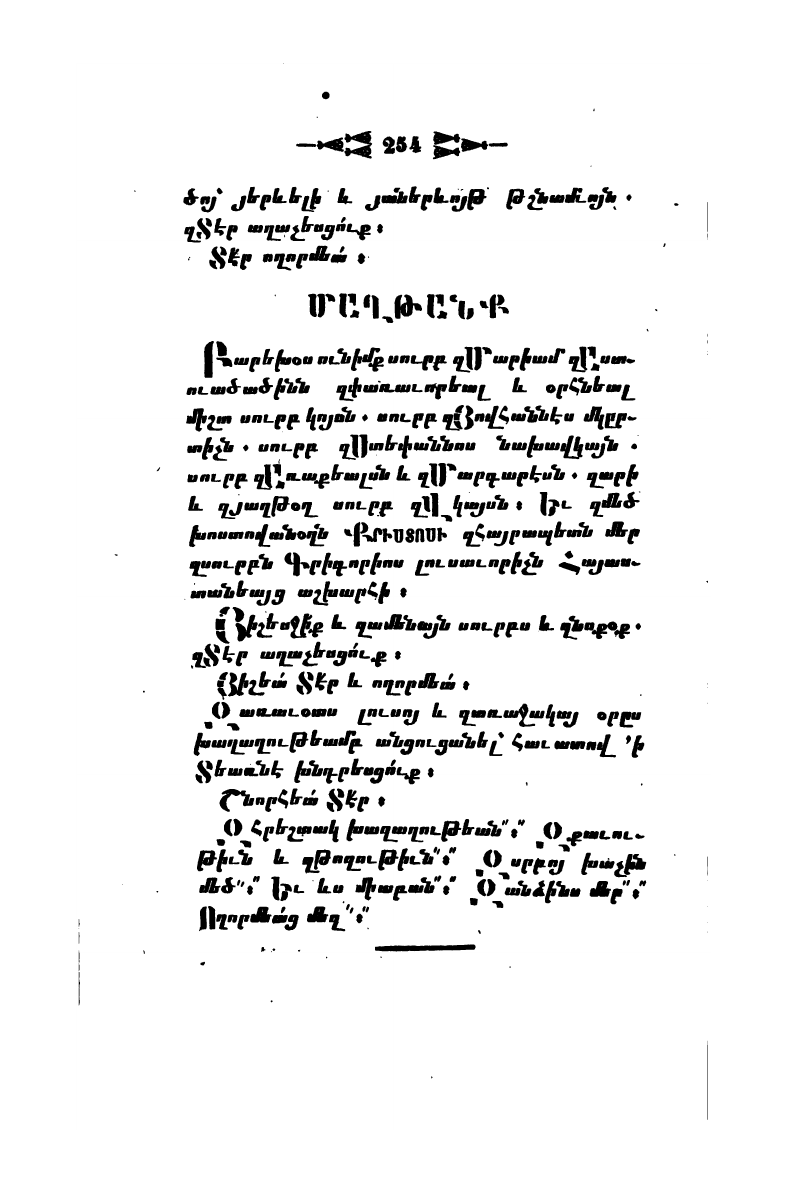 254
ծոյ՝ յերևելի և յաներևոյթ թշնամւոյն .
զՏէր աղաչեսցո՛ւք ։
Տէ՛ր ողորմեա՛ ։
ՄԱՂԹԱՆՔ
Բարեխօս ունիմք սուրբ զՄարիամ զԱստ-
ուածածինն զփառաւորեալ և օրհնեալ
միշտ սուրբ կոյսն . սուրբ զՅովհաննէս մկըր-
տիչն . սուրբ զՍտեփաննոս նախավկայն .
սուրբ զԱռաքեալսն և զՄարգարէսն . զարի
և զյաղթօղ սուրբ զՎկայսն ։ Եւ զմեծ
խոստովանօղն ՔՐԻՍՏՈՍԻ զհայրապետն մեր
զսուրբն Գրիգորիոս լուսաւորիչն Հայաս-
տանեայց աշխարհի ։
Յիշեսջի՛ք և զամենայն սուրբս և զնոքօք .
զՏէր աղաչեսցո՛ւք ։
Յիշեա՛ Տէ՛ր և ողորմեա՛ ։
Զառաւօտս լուսոյ և զառաջակայ օրըս
խաղաղութեամբ անցուցանել՝ հաւատով ՚ի
Տեառնէ խնդրեսցո՛ւք ։
Շնորհեա՛ Տէր ։
Զհրեշտակ խաղաղութեան՝՝ ։՝՝ Զքաւու-
թիւն և զթողութիւն՝՝ ։՝՝ Զսրբոյ խաչին
մեծ՝՝ ։՝՝ Եւ ևս միաբան՝՝ ։՝՝ Զանձինս մեր՝՝ ։՝՝
Ողորմեա՛ց մեզ՝՝ ։՝՝